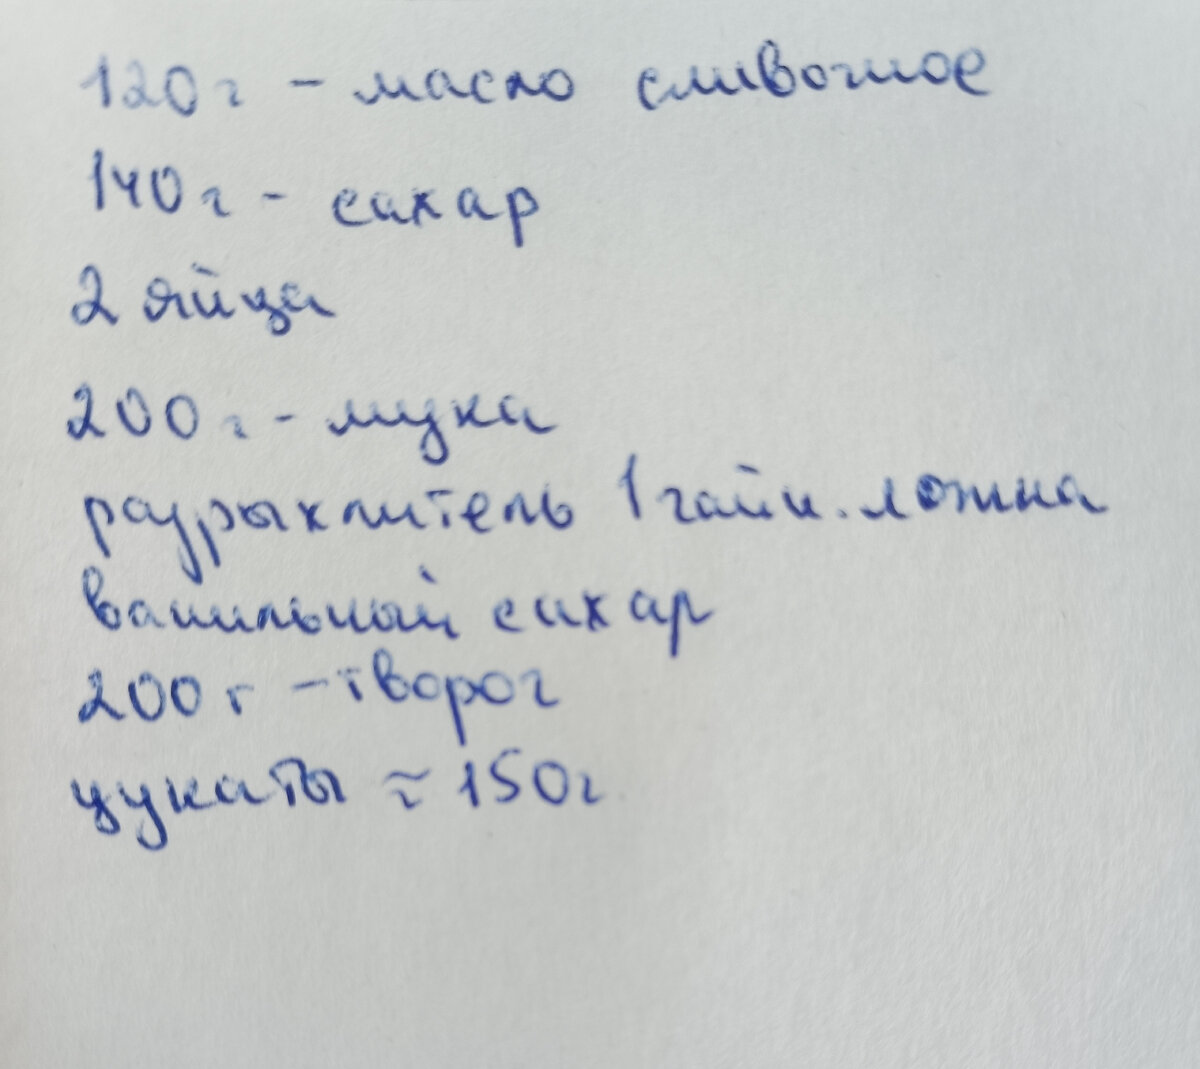 120г - масло сливочное
140г - сахар
2 яйца
200г - мука
разрыхлитель 1 чайн. ложка
ванильный сахар
200г - творог
цукаты ≈ 150г